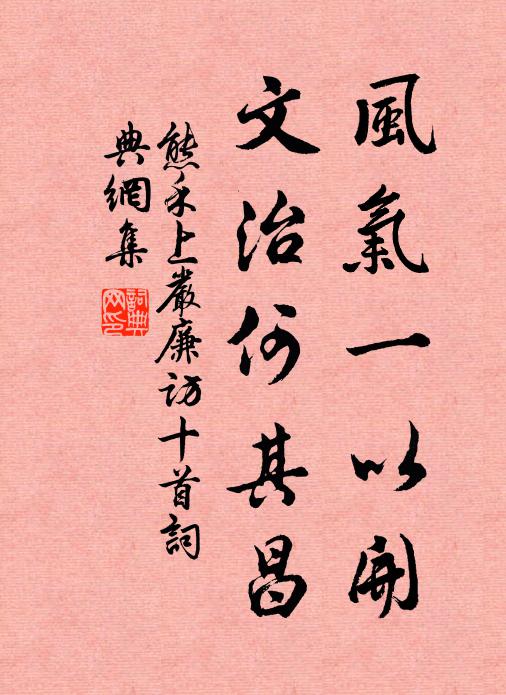 風氣一以開
文治何其昌
熊禾上嚴廉訪十首詞
典網集
詞典網印